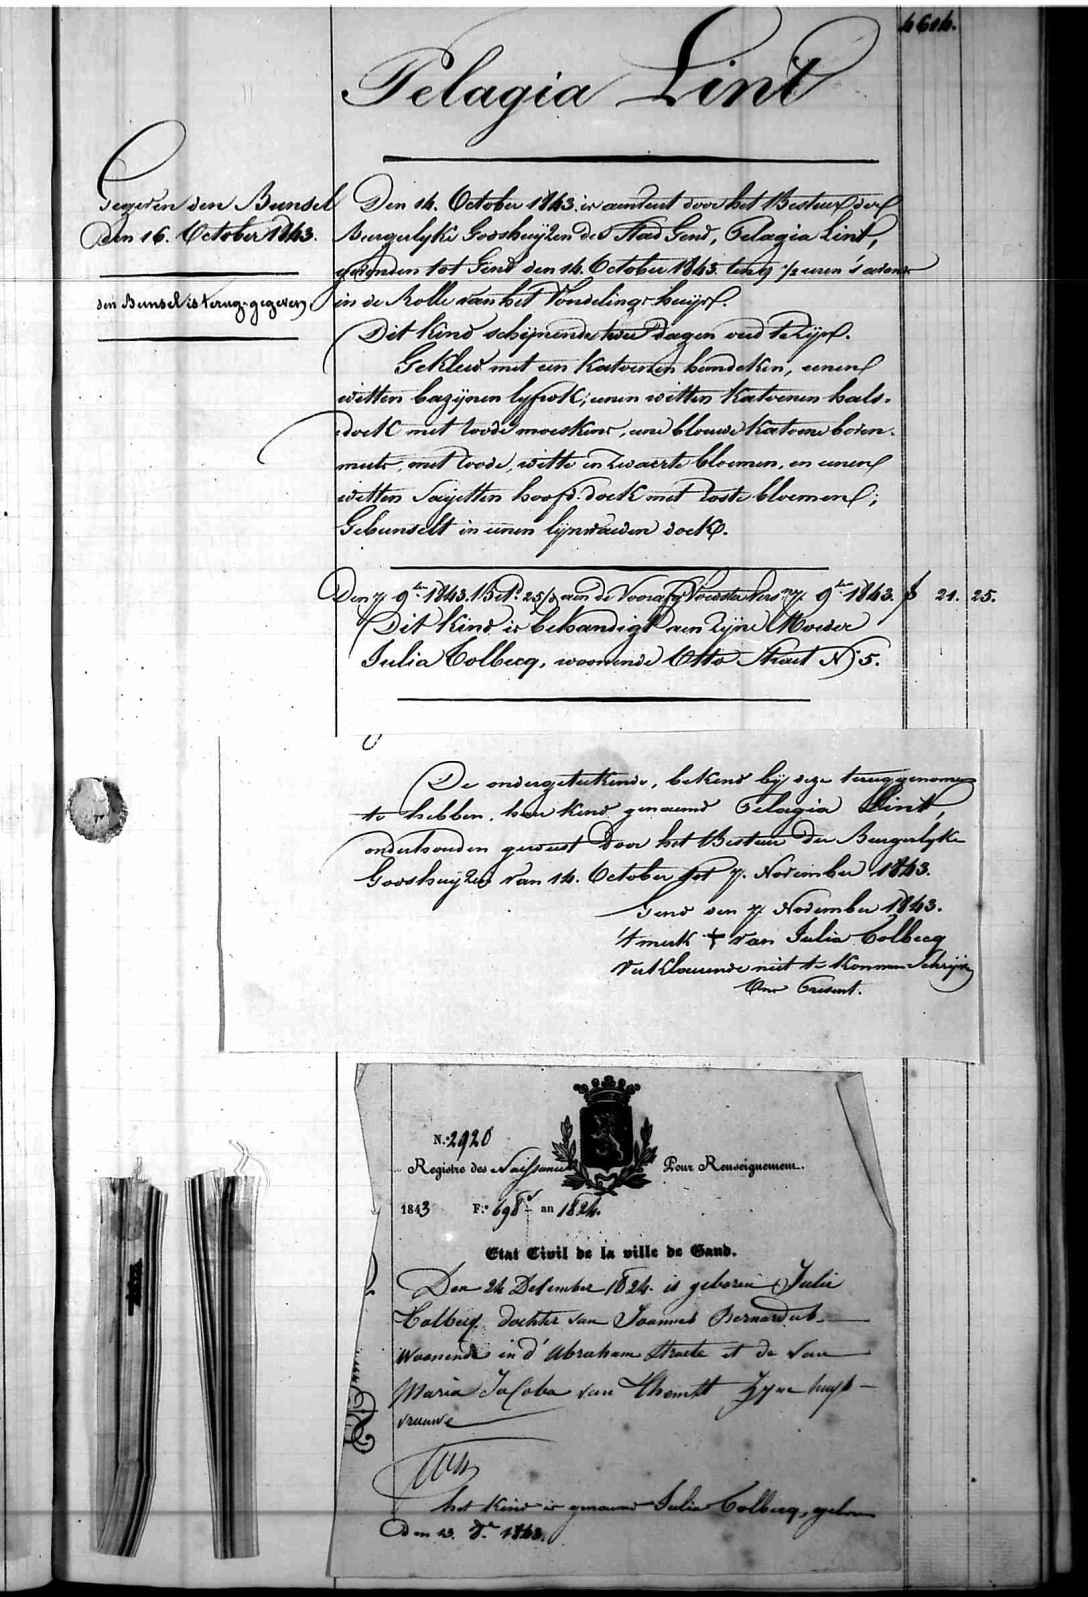 4604.
Pelagia Lint
Gegeven den Bunsel
den 16. October 1843.
den Bunsel is terug-gegeven.
Den 14. October 1843. is aenveert door het Bestuur der
Burgerlyke Godshuyzen der Stad Gend, Pelagia Lint,
gevonden tot Gend den 14. October 1843. ten 9 1/2 uren 's avonds
in de Rolle van het Vondelinge-huys.
Dit Kind schynende twee dagen oud te zyn.
Gekleed met een Katoenen hemdeken, eenen
witten bazynen lyfrok; eenen witten Katoenen hals-
doek met roode moeskens, eene blouwe Katoene boven-
muts, met roode, witte en zwaerte bloemen, en eenen
witten Sayetten hoofd-doek met roste bloemen;
Gebunselt in eenen lynwaeden doek.
Den 7. 9.re 1843. Bet. 25/3 aen de Voorz. Voedster 7. 9.re 1843. f 21. 25.
Dit Kind is behandigt aen zyne Moeder
Julia Colbecq, woonende Otto Straet N. 5.
De ondergeteekende, bekend by deze teruggenomen
te hebben, haer kind genaemd Pelagia Lint,
onderhouden geweest door het Bestuur der Burgerlyke
Godshuyzen van 14. October tot 7. November 1843.
Gend den 7 November 1843.
't merk + van Julia Colbecq
verklaerende niet te konnen Schryven
Present.
N.º 2920
Registre des Naissances Pour Renseignement.
1843 F.º 698 an 1824.
Etat Civil de la ville de Gand.
Den 24 December 1824. is geboren Julie
Colbecq dochter van Joannes Bernardus
woonende in d'Abraham Straete et de van
Maria Jacoba van Themst zyne huys-
vrouwe
het Kind is genaemd Julia Colbecq, geboren
den 13. 8.re 1843.